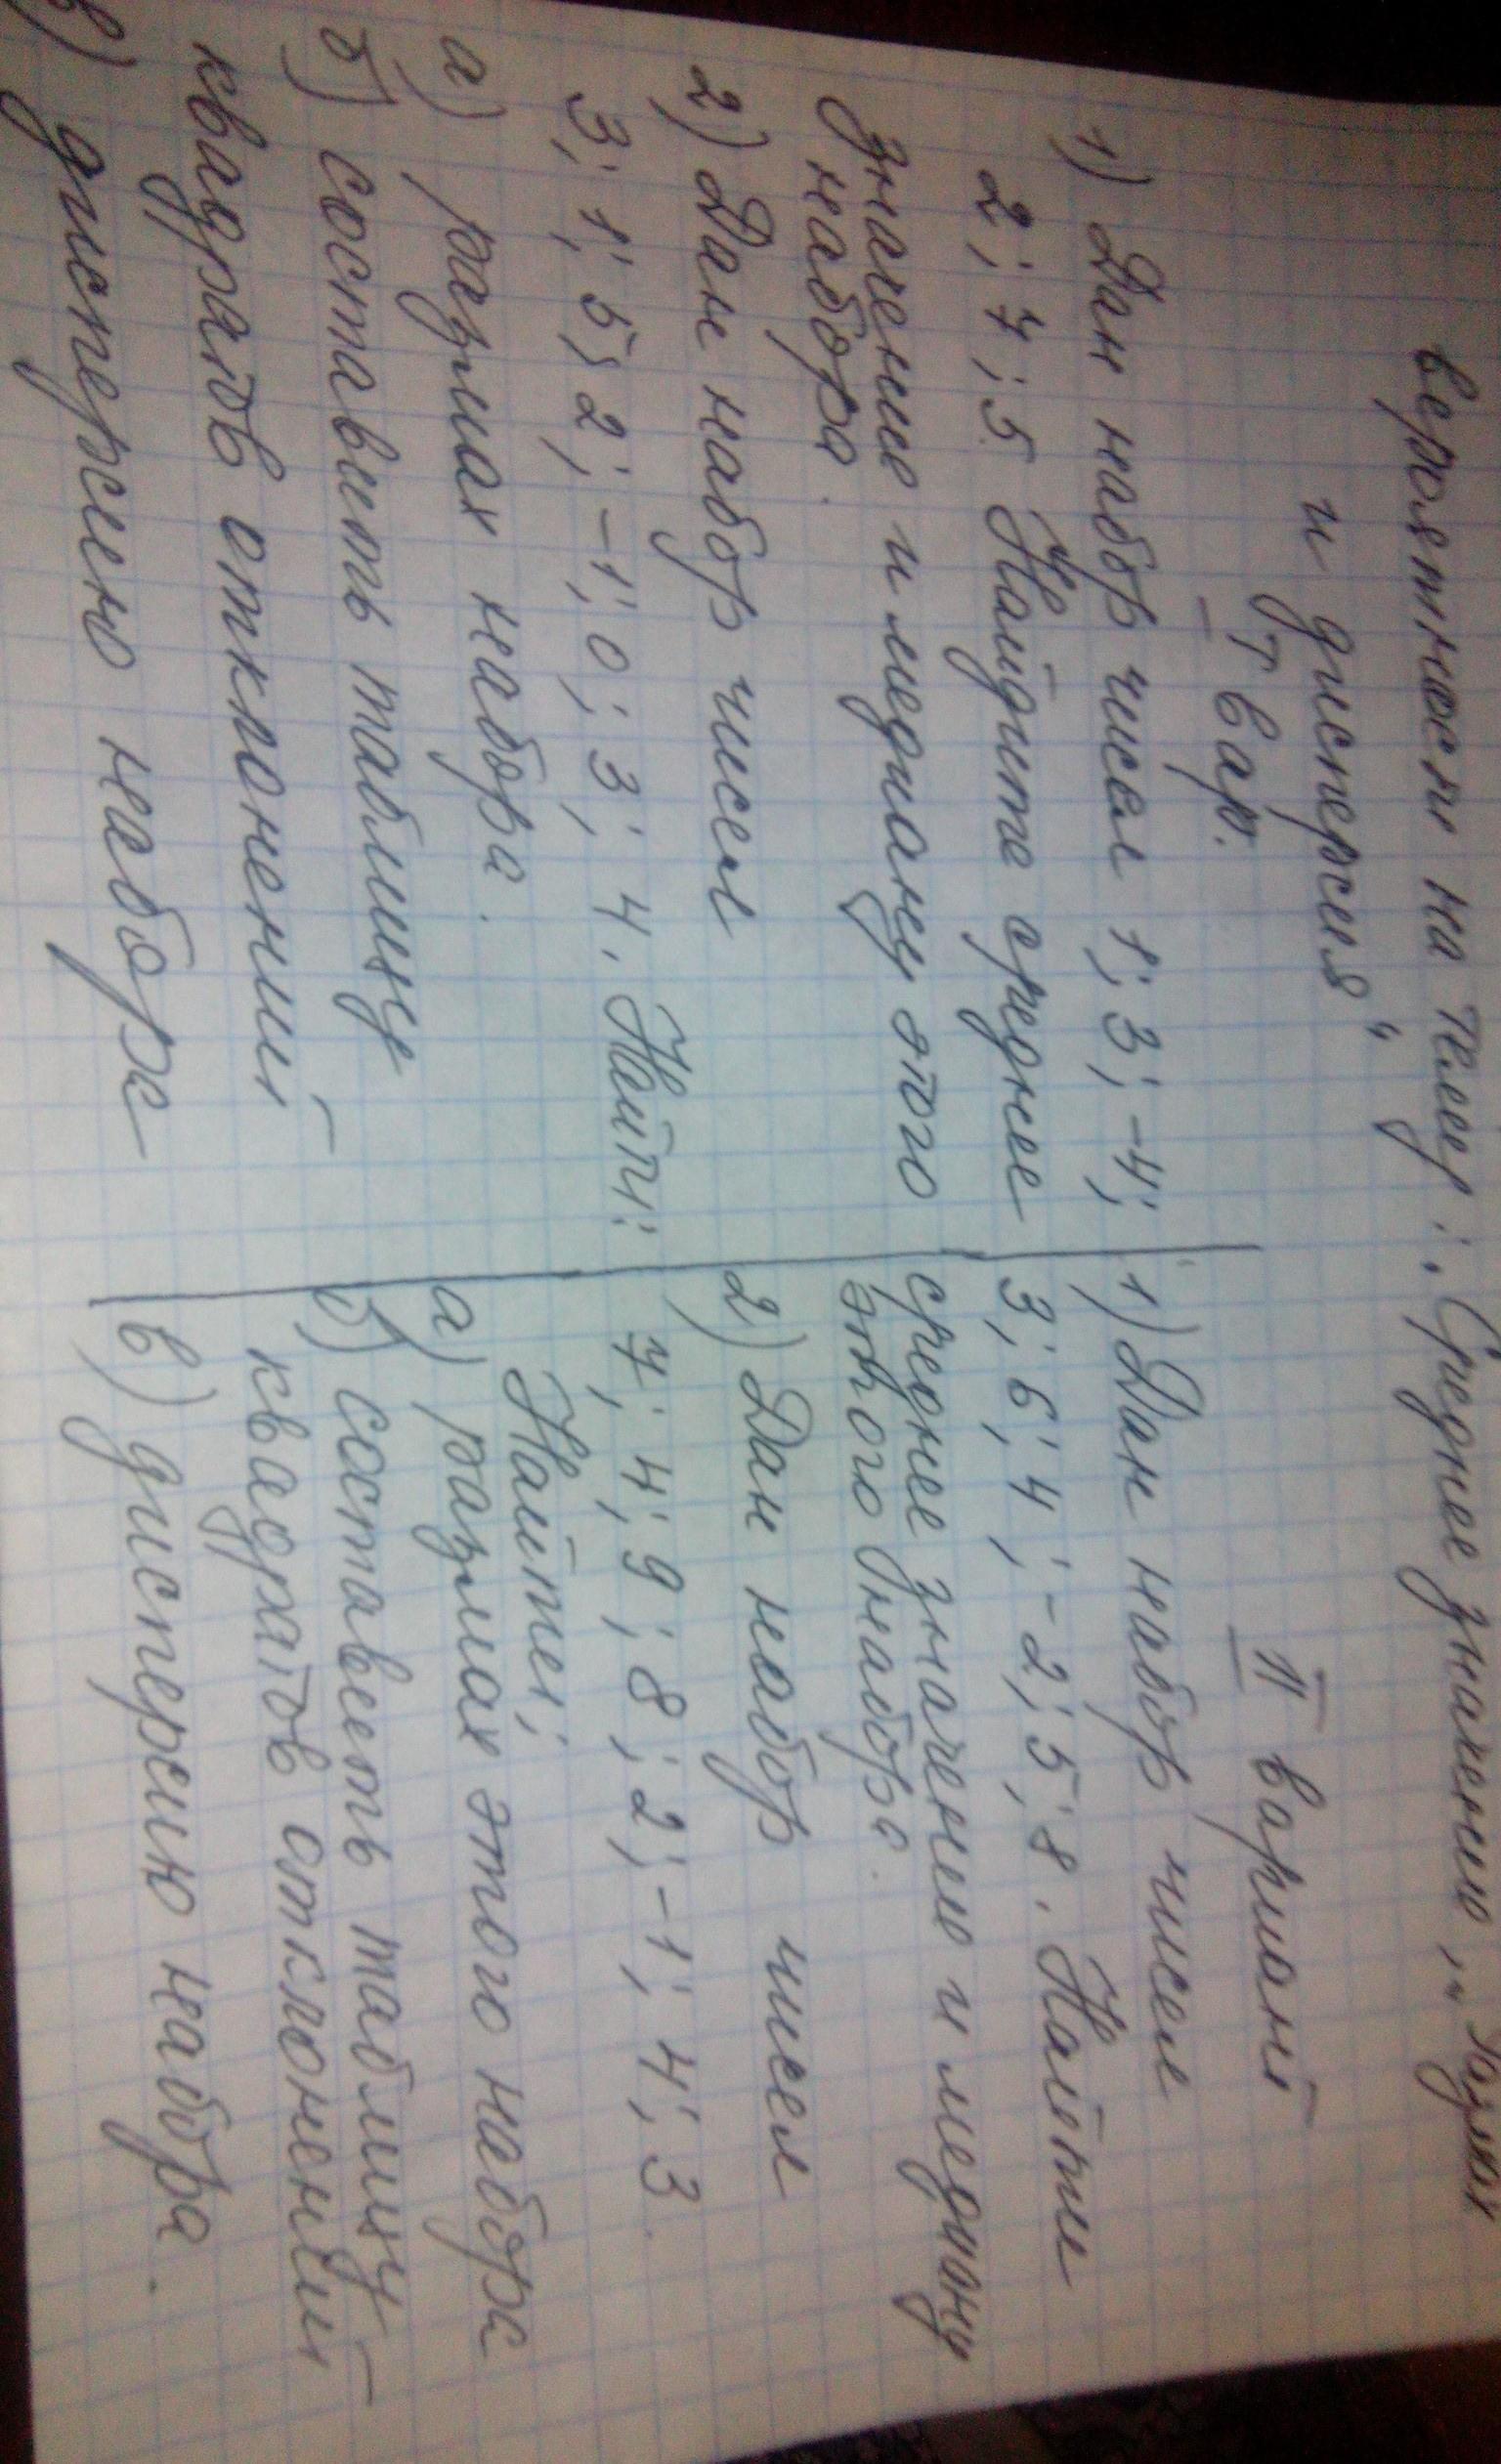 вероятности на тему: „Среднее значение, „Размах
и дисперсия"
I вар.
1) Дан набор чисел 1; 3; -4;
2; 7; 5 Найдите среднее
значение и медиану этого
набора.
2) Дан набор чисел
3; 1; 5; 2; -1; 0; 3; 4. Найти:
а) размах набора.
б) составить таблицу
квадратов отклонений
в) дисперсию набора
II вариант
1) Дан набор чисел
3; 6; 4; -2; 5; 8. Найти
среднее значение и медиану
этого набора.
2) Дан набор чисел
7; 4; 9; 8; 2; -1; 4; 3.
Найти:
а) размах этого набора
б) составить таблицу
квадратов отклонений
в) дисперсию набора.